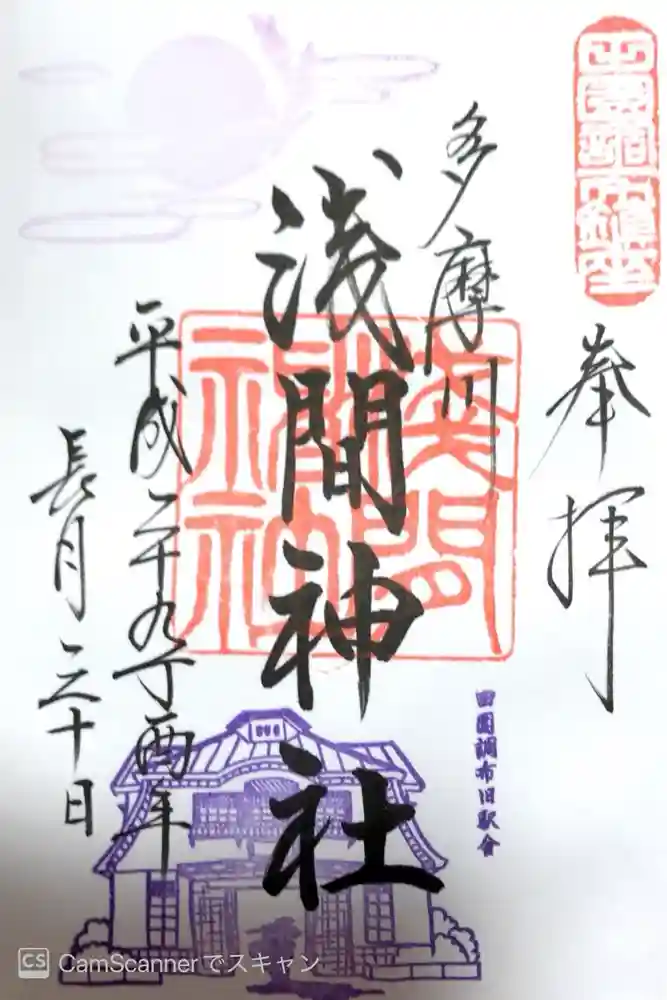 田園調布鎮座
奉拝
多摩川
浅間神社
平成二十九丁酉年
長月三十日
田園調布旧駅舎
CS CamScannerでスキャン